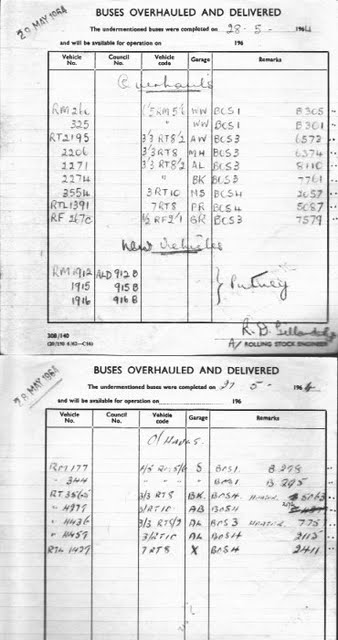 29 MAY 1964
BUSES OVERHAULED AND DELIVERED
The undermentioned buses were completed on 28 - 5 - 1964
and will be available for operation on 196
Vehicle No. Council No. Vehicle code Garage Remarks
Overhauls
RM 266 1/5RM5/6 WW BCS1 B305
325 " WW BCS1 B301
RT2195 3/3 RT8/2 AW BCS3 6573
2206 3/3 RT8 MH BCS3 6374
2271 3/3 RT8/2 AL BCS3 8110
2274 " BK BCS3 7761
3554 3RT10 MS BCS4 2057
RTL1391 7RT8 PR BCS4 5087
RF 267c 1/2 RF2/1 GR BCS3 7579
New Vehicles
RM1912 ALD 912 B
1915 915 B Putney
1916 916 B
308/140
A/ ROLLING STOCK ENGINEER
28 MAY 1964
BUSES OVERHAULED AND DELIVERED
The undermentioned buses were completed on 27 - 5 - 1964
and will be available for operation on 196
Vehicle No. Council No. Vehicle code Garage Remarks
O/Hauls.
RM 177 1/5 RM5/6 S BCS1. B 278
" 344 " " BCS1 B 295
RT 3565 3/3 RT8 BK. BCS4 5063
" 4977 3/RT10 AB BCS4
" 4436 3/3 RT8/2 AL BCS3 775
" 4457 3/RT10 AL BCS4 2113
RTL 1427 7RT8 X BCS4 2411